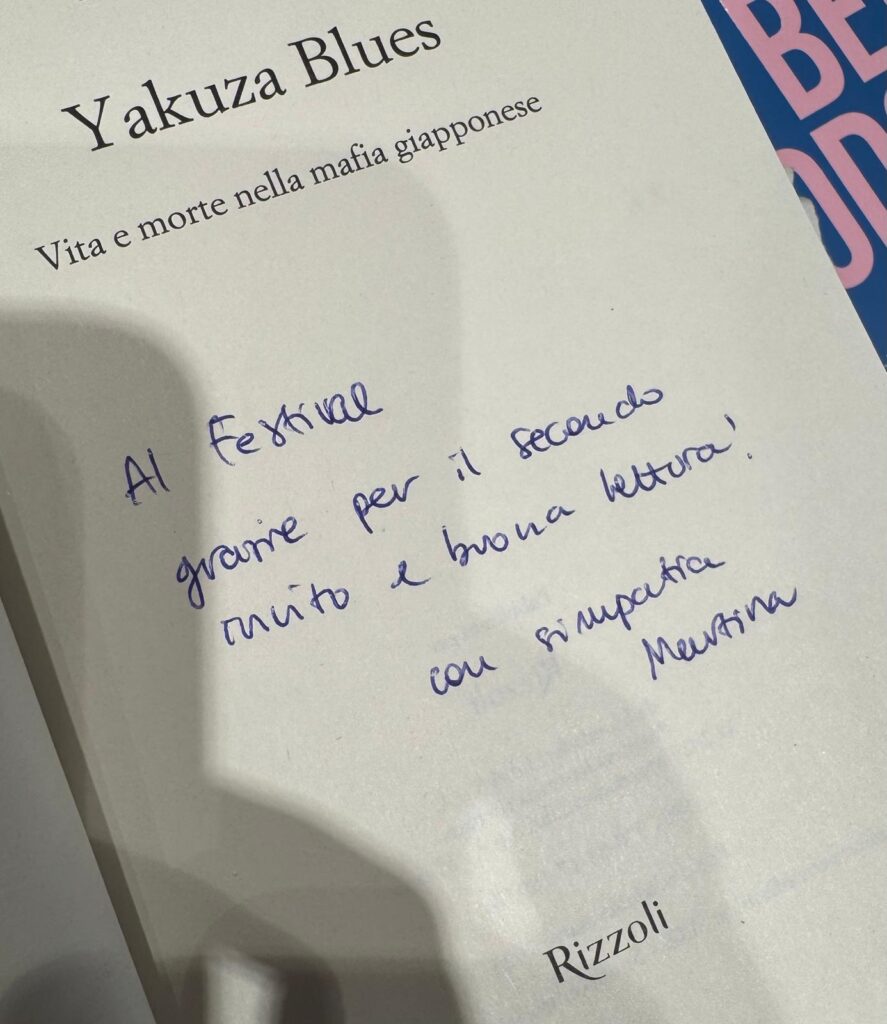 Yakuza Blues
Vita e morte nella mafia giapponese
Al Festival
grazie per il secondo
invito e buona lettura!
con simpatia
Martina
Rizzoli
BE
OD